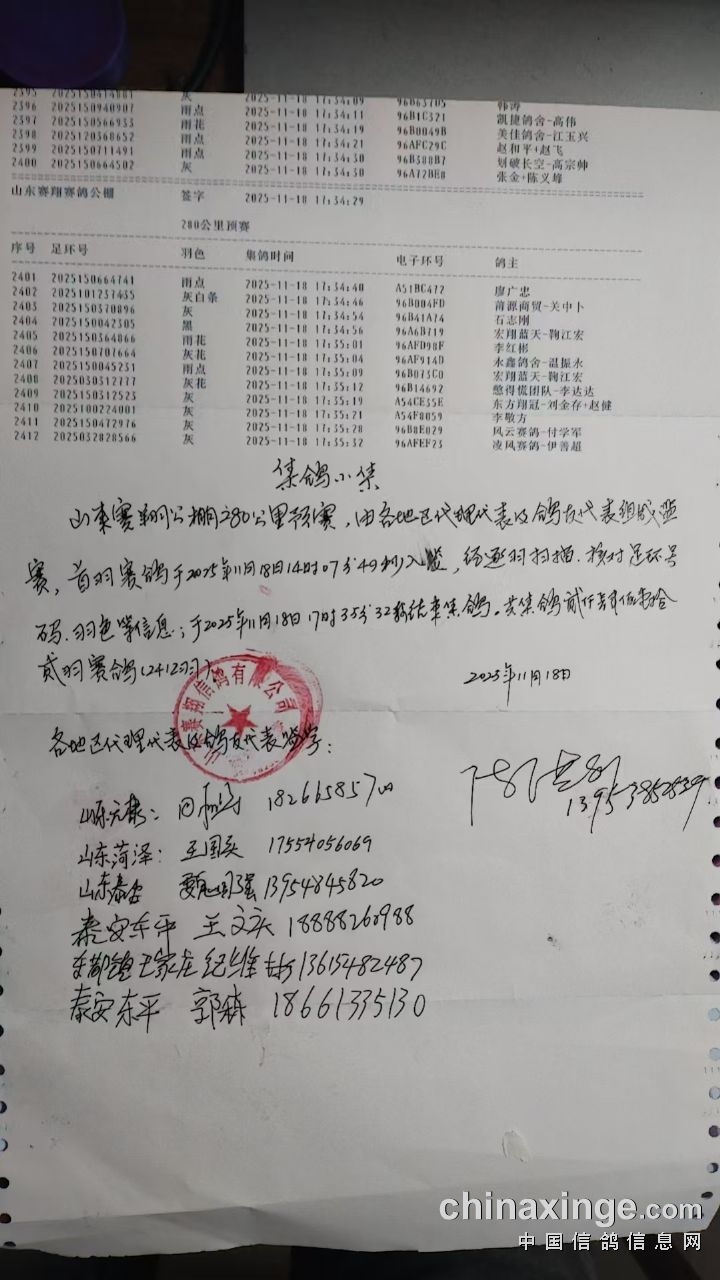 2395 2025150414881 灰 2025-11-18 17:34:09 96B637D5 韩涛
2396 2025150940907 雨点 2025-11-18 17:34:11 96B1C321 凯捷鸽舍-高伟
2397 2025150566933 雨花 2025-11-18 17:34:19 96B0049B 美佳鸽舍-江玉兴
2398 2025120368652 雨点 2025-11-18 17:34:21 96AFC29C 赵和平+赵飞
2399 2025150711491 雨点 2025-11-18 17:34:30 96B388B7 划破长空-高宗帅
2400 2025150664502 灰 2025-11-18 17:34:30 96A72BE8 张金+陈义峰
山东赛翔赛鸽公棚 签字 2025-11-18 17:34:29
280公里预赛
序号 足环号 羽色 集鸽时间 电子环号 鸽主
2401 2025150664741 雨点 2025-11-18 17:34:40 A51BC472 廖广忠
2402 2025101237435 灰白条 2025-11-18 17:34:46 96B004FD 莆源商贸-关中卜
2403 2025150370896 灰 2025-11-18 17:34:54 96B41A74 石志刚
2404 2025150042305 黑 2025-11-18 17:34:56 96A6B719 宏翔蓝天-鞠江宏
2405 2025150364866 雨花 2025-11-18 17:35:01 96AFD98F 李红彬
2406 2025150707664 灰花 2025-11-18 17:35:04 96AF914D 永鑫鸽舍-温振永
2407 2025150045231 雨点 2025-11-18 17:35:09 96B073C0 宏翔蓝天-鞠江宏
2408 2025030312777 灰花 2025-11-18 17:35:12 96B14692 憨得慌团队-李达达
2409 2025150312523 灰 2025-11-18 17:35:19 A54CE35E 东方翔冠-刘金存+赵健
2410 2025100224001 灰 2025-11-18 17:35:21 A54F8059 李敬方
2411 2025150472976 灰 2025-11-18 17:35:28 96B8E029 风云赛鸽-付学军
2412 2025032828566 灰 2025-11-18 17:35:32 96AFEF23 凌风赛鸽-伊善超
集鸽小结
山东赛翔公棚280公里预赛，由各地区代理代表及鸽友代表组成监
赛，首羽赛鸽于2025年11月18日14时07分49秒入笼，经逐羽扫描、核对足环号
码、羽色等信息；于2025年11月18日17时35分32秒结束集鸽。共集鸽贰仟肆佰壹拾
贰羽赛鸽(2412羽)。
2025年11月18日
赛翔信鸽有限公司
各地区代理代表及鸽友代表签字：
13953852839
山东 182665857
山东菏泽： 王国 17554056069
山东泰安 强 13954845820
泰安东平 王文 18888260988
家庄 纪维 13615482487
泰安东平 郭 18661335130
chinaxinge.com
中国信鸽信息网